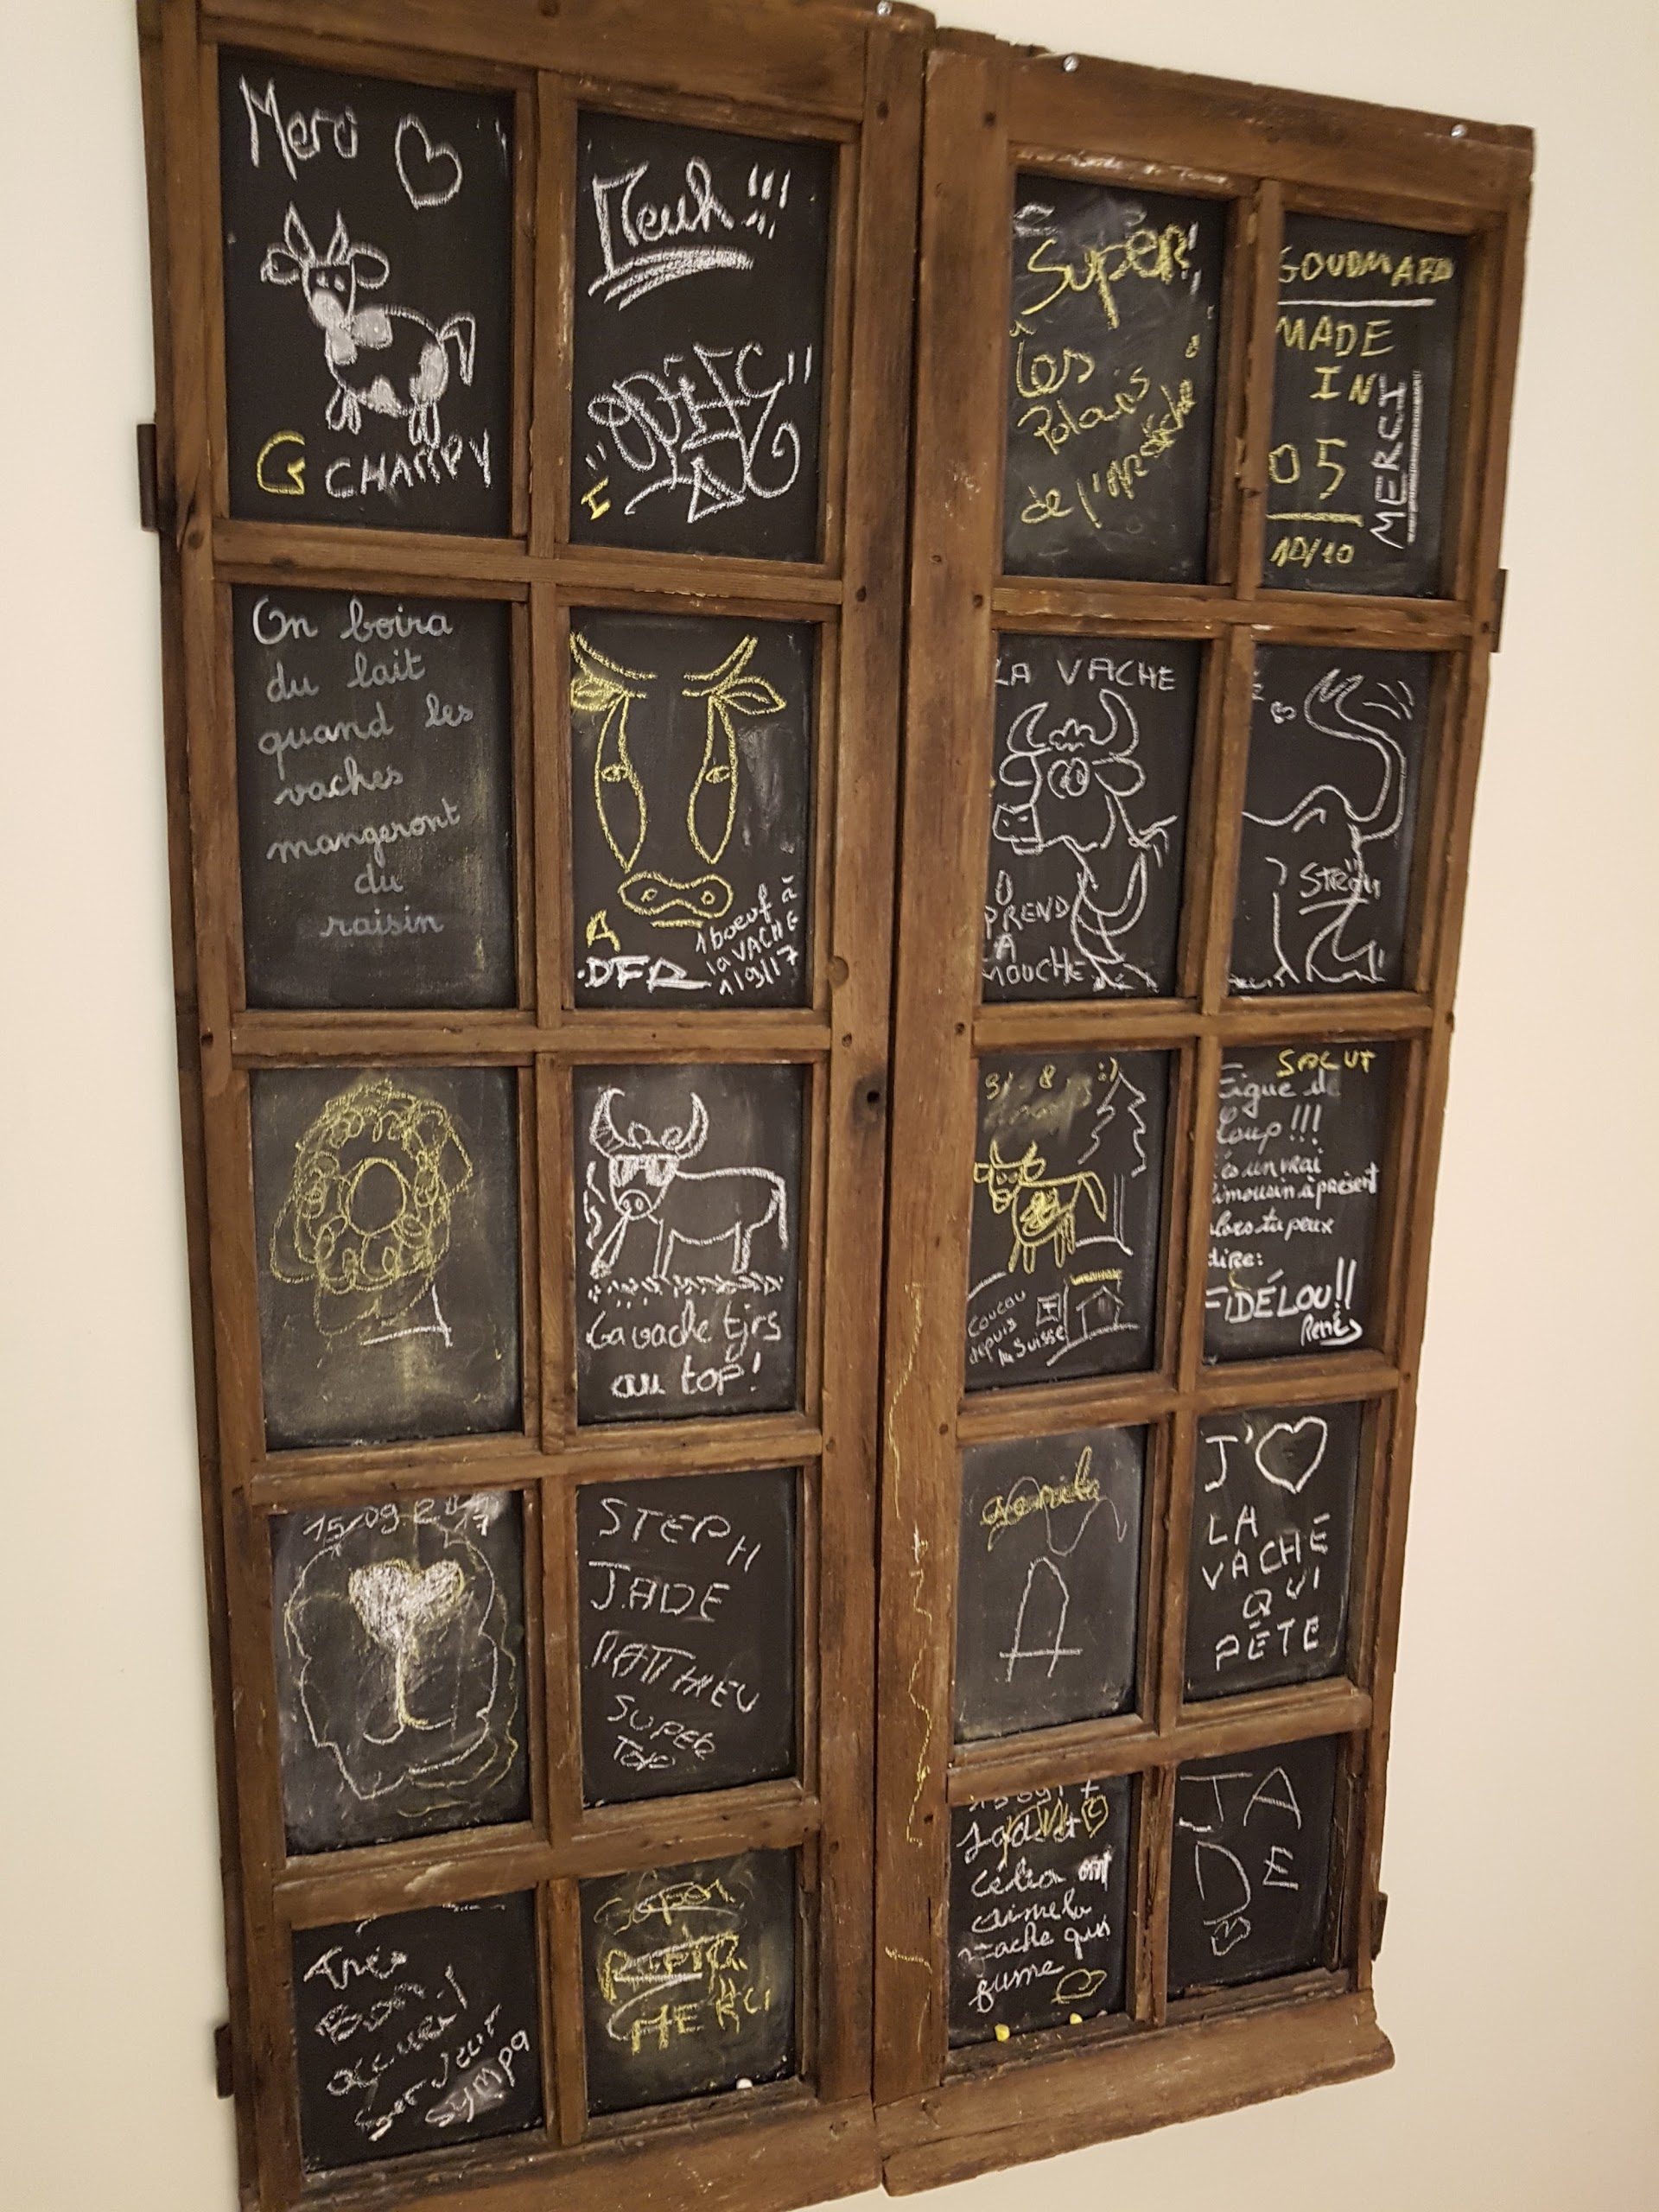 Merci
G CHAMPY
Meuh !!!
On boira
du lait
quand les
vaches
mangeront
du
raisin
1 boeuf à
la VACHE
1/9/17
DFR
La vache tjrs
au top!
15/09 2017
STEPH
JADE
MATTHIEU
SUPER
TOP
Très
Bon
accueil
Serveur
Sympa
MERCI
Super!
Les
Polais
de l'
GOUDMAFD
MADE
IN
05
10/10
MERCI
LA VACHE
PREND
LA
MOUCHE
:)
COUCOU
depuis
la Suisse
SALUT
un vrai
limousin à présent
alors tu peux
dire:
FIDÉLOU!!
René
A
J'
LA
VACHE
QUI
PÈTE
Jade et
Célia ont
aimé la
vache qui
fume
JA
DE